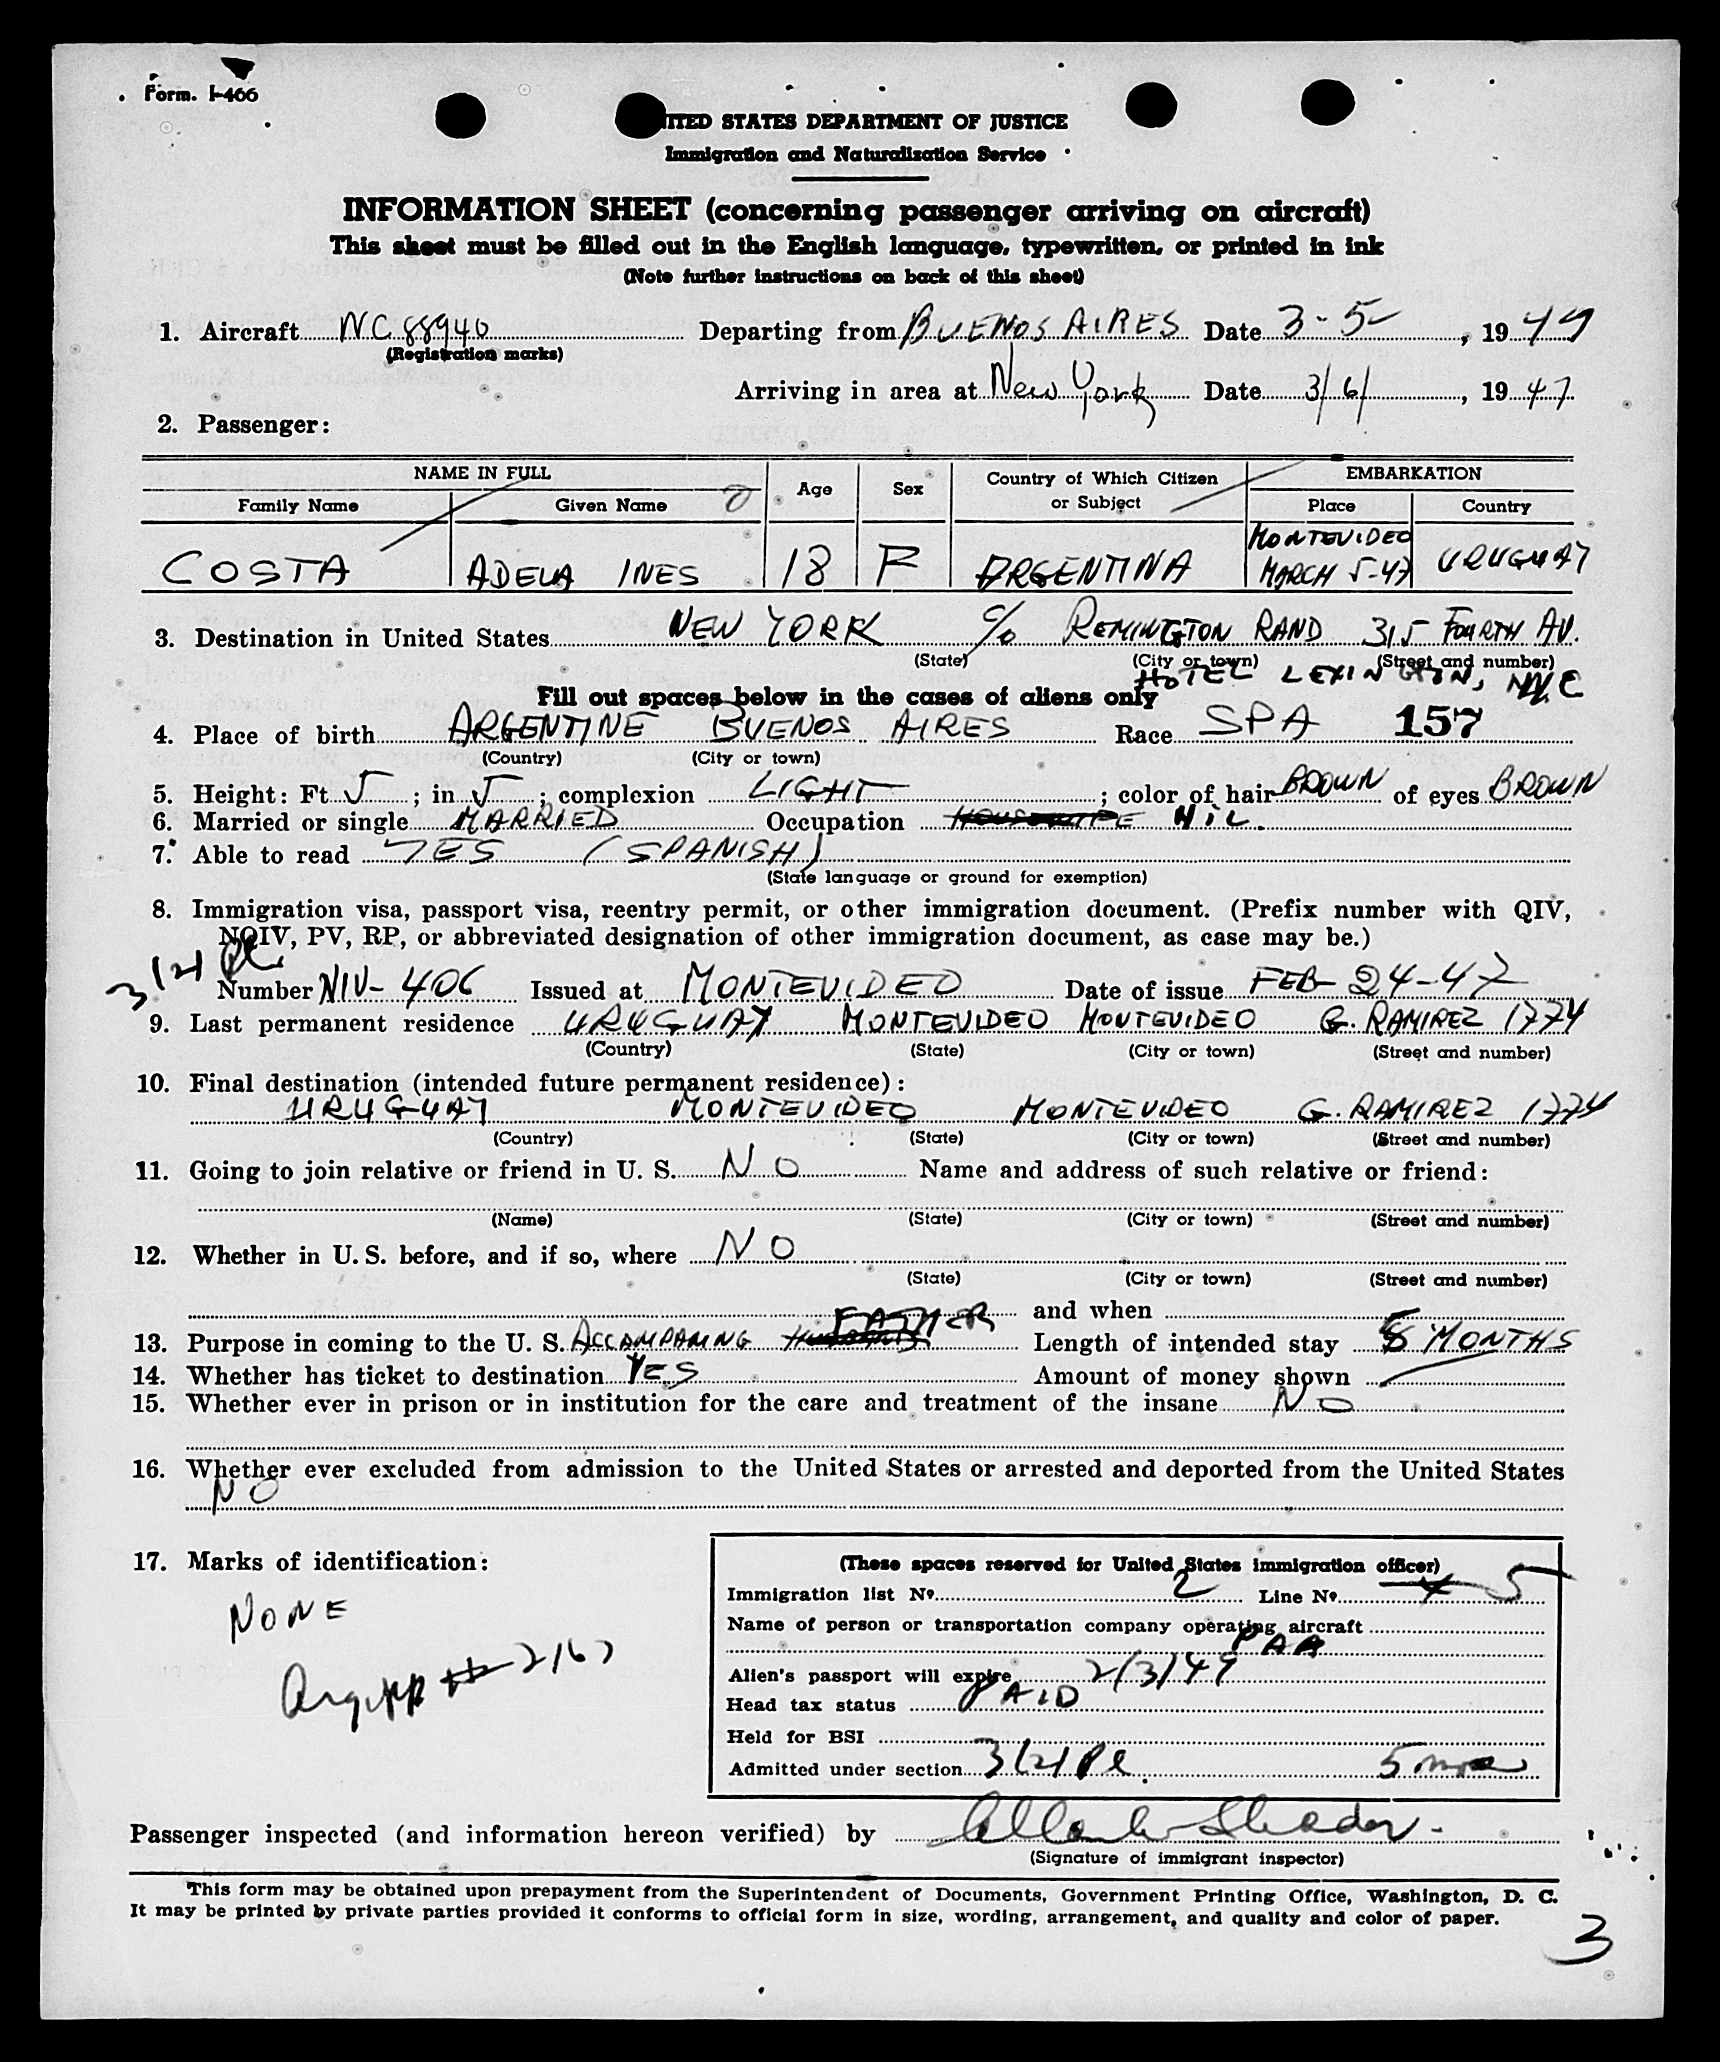 Form. I-466
UNITED STATES DEPARTMENT OF JUSTICE
Immigration and Naturalization Service
INFORMATION SHEET (concerning passenger arriving on aircraft)
This sheet must be filled out in the English language, typewritten, or printed in ink
(Note further instructions on back of this sheet)
1. Aircraft NC 88940 Departing from BUENOS AIRES Date 3-5-, 1947
(Registration marks)
Arriving in area at New York Date 3/6/, 1947
2. Passenger:
NAME IN FULL Age Sex Country of Which Citizen or Subject EMBARKATION
Family Name Given Name Place Country
COSTA ADELA INES 18 F ARGENTINA MONTEVIDEO MARCH 5-47 URUGUAY
3. Destination in United States NEW YORK c/o REMINGTON RAND 315 FOURTH AV.
(State) (City or town) (Street and number)
HOTEL LEXINGTON, NYC
Fill out spaces below in the cases of aliens only
4. Place of birth ARGENTINE BUENOS AIRES Race SPA 157
(Country) (City or town)
5. Height: Ft 5; in 5; complexion LIGHT; color of hair BROWN of eyes BROWN
6. Married or single MARRIED Occupation HOUSEWIFE NIL.
7. Able to read YES (SPANISH)
(State language or ground for exemption)
8. Immigration visa, passport visa, reentry permit, or other immigration document. (Prefix number with QIV,
NQIV, PV, RP, or abbreviated designation of other immigration document, as case may be.)
3(2)
Number NIV-406 Issued at MONTEVIDEO Date of issue FEB-24-47
9. Last permanent residence URUGUAY MONTEVIDEO MONTEVIDEO G. RAMIREZ 1774
(Country) (State) (City or town) (Street and number)
10. Final destination (intended future permanent residence):
URUGUAY MONTEVIDEO MONTEVIDEO G. RAMIREZ 1774
(Country) (State) (City or town) (Street and number)
11. Going to join relative or friend in U. S. NO Name and address of such relative or friend:
(Name) (State) (City or town) (Street and number)
12. Whether in U. S. before, and if so, where NO
(State) (City or town) (Street and number)
and when
FATHER
13. Purpose in coming to the U. S. ACCAMPANING Length of intended stay 5 MONTHS
14. Whether has ticket to destination YES Amount of money shown
15. Whether ever in prison or in institution for the care and treatment of the insane NO
16. Whether ever excluded from admission to the United States or arrested and deported from the United States
NO
17. Marks of identification:
NONE
(These spaces reserved for United States immigration officer)
Immigration list No. 2 Line No. 4 5
Name of person or transportation company operating aircraft
PAA
Alien's passport will expire 2/3/49
Head tax status PAID
Held for BSI
Admitted under section 3(2) 5 mos
Passenger inspected (and information hereon verified) by
(Signature of immigrant inspector)
This form may be obtained upon prepayment from the Superintendent of Documents, Government Printing Office, Washington, D. C.
It may be printed by private parties provided it conforms to official form in size, wording, arrangement, and quality and color of paper.
3